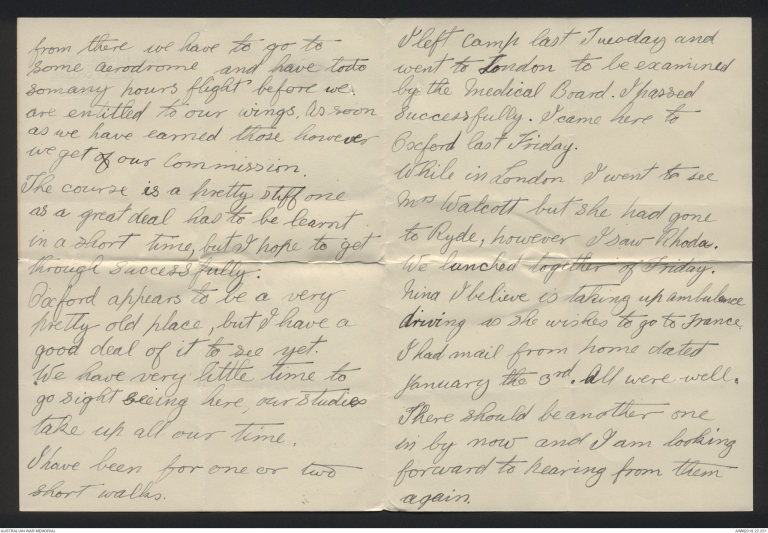 from there we have to go to
some aerodrome and have to do
so many hours flight before we
are entitled to our wings. As soon
as we have earned those however
we get our commission.
The course is a pretty stiff one
as a great deal has to be learnt
in a short time, but I hope to get
through successfully.
Oxford appears to be a very
pretty old place, but I have a
good deal of it to see yet.
We have very little time to
go sight seeing here, our studies
take up all our time.
I have been for one or two
short walks.
I left camp last Tuesday and
went to London to be examined
by the Medical Board. I passed
successfully. I came here to
Oxford last Friday.
While in London I went to see
Mrs Walcott but she had gone
to Ryde, however I saw Rhoda.
We lunched together of Friday.
Nina I believe is taking up ambulance
driving as she wishes to go to France.
I had mail from home dated
January the 3rd. All were well.
There should be another one
in by now and I am looking
forward to hearing from them
again.
AUSTRALIAN WAR MEMORIAL